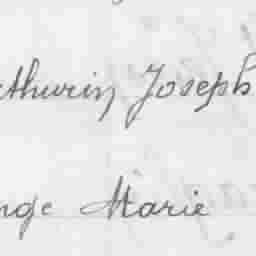 thurin Joseph
nge Marie